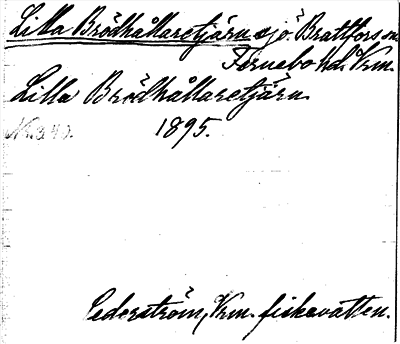 Lilla Brödhållaretjärn sjö Brattfors sn
Fernebo hd. Vrm.
Lilla Brödhållaretjärn
1895.
Cederström, Vrm. fiskevatten.